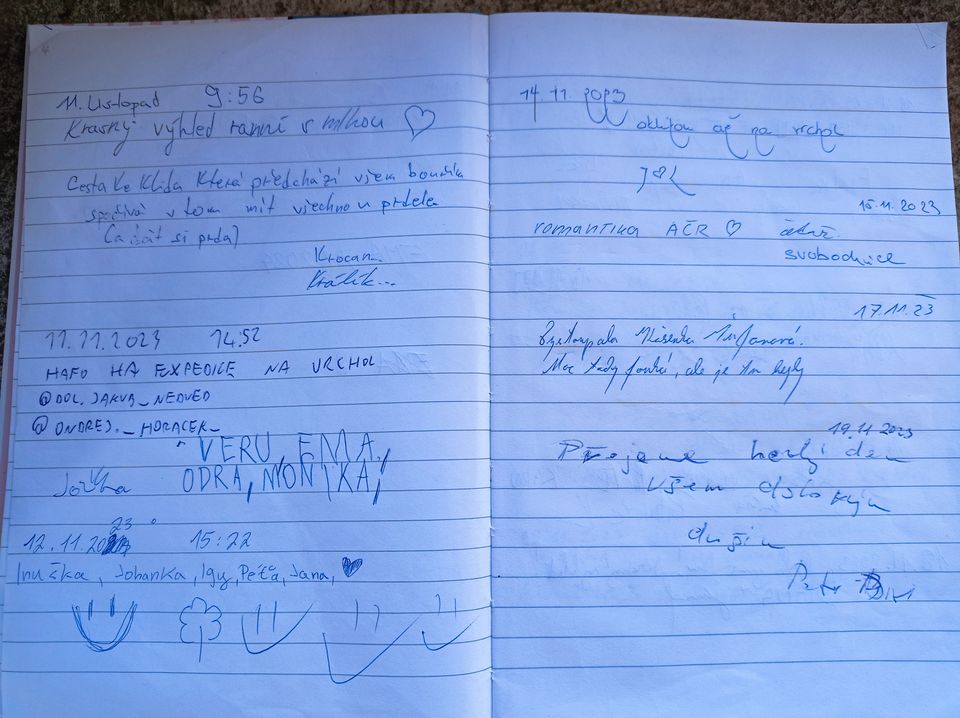 11. Listopad 9:56
Krásný výhled ranní s mlhou
Cesta ke klidu která předchází všem bouřkám
spočívá v tom mít všechno u prdele
si prdel)
Krocan...
Králík...
11.11.2023 14:52
HAFO NA EXPEDICE NA VRCHOL
@DOL.JAKUB_NEDVED
@ONDREJ._HORACEK_
VERU, EMA,
ODRA, MONIKA,
Jožka
12.11.2023 15:22
Inuška, Johanka, Igy, Péťa, Jana,
14.11.2023
až na vrchol
J&L
15.11.2023
romantika AČR
svobodnice
17.11.23
Moc tady fouká, ale je tu hezky
19.11.2023
Přejeme hezký den
všem
duším
Petr